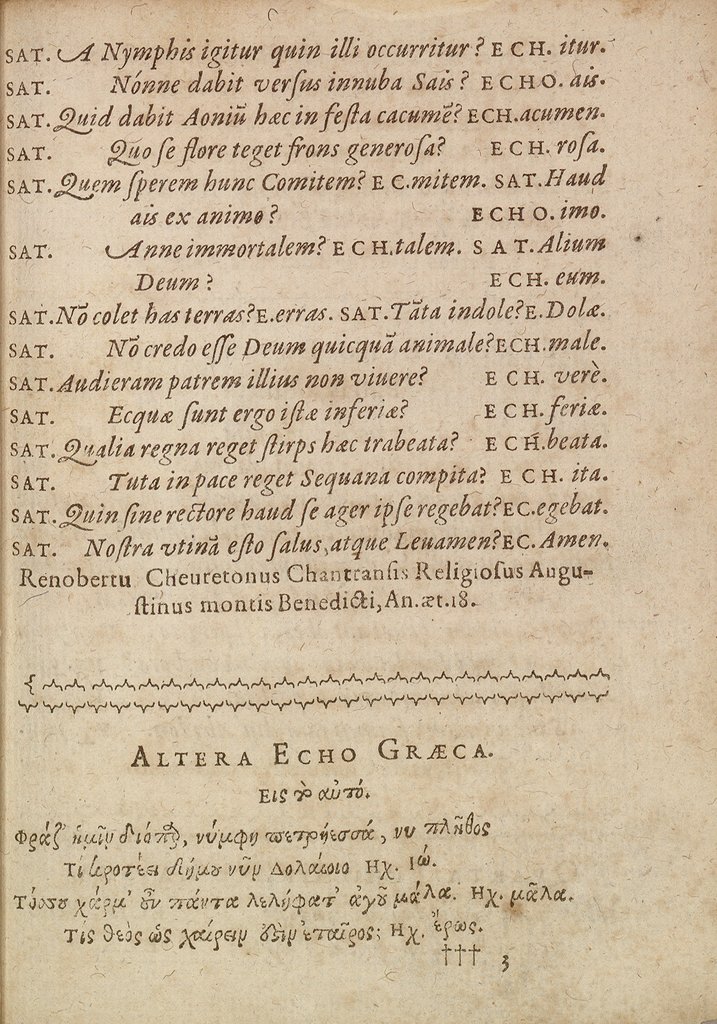 SAT. A Nymphis igitur quin illi occurritur? ECH. itur.
SAT. Nónne dabit verſus innuba Sais? ECHO. ais.
SAT. Quid dabit Aoniũ hæc in feſta cacumẽ? ECH. acumen.
SAT. Quo ſe flore teget frons generoſa? ECH. roſa.
SAT. Quem ſperem hunc Comitem? EC. mitem. SAT. Haud
ais ex animo? ECHO. imo.
SAT. Anne immortalem? ECH. talem. SAT. Alium
Deum? ECH. eum.
SAT. Nõ colet has terras? E. erras. SAT. Tãta indole? E. Dolæ.
SAT. Nõ credo eſſe Deum quicquã animale? ECH. male.
SAT. Audieram patrem illius non viuere? ECH. verè.
SAT. Ecquæ ſunt ergo iſtæ inferiæ? ECH. feriæ.
SAT. Qualia regna reget ſtirps hæc trabeata? ECH. beata.
SAT. Tuta in pace reget Sequana compita? ECH. ita.
SAT. Quin ſine rectore haud ſe ager ipſe regebat? EC. egebat.
SAT. Noſtra vtinã eſto ſalus, atque Leuamen? EC. Amen.
Renobertu Cheuretonus Chantranſis Religioſus Augu-
ſtinus montis Benedicti, An. æt. 18.
ALTERA ECHO GRÆCA.
Εις αὐτό.
Φράζ' ἡμῖν νύμφη πετρήεσσά, νυ πλῆθος
Τί νῦν Δολαίοιο Ηχ. Ἰώ.
Τόσου χάρμ' πάντα μάλα. Ηχ. μᾶλα.
Τις θεὸς ὡς χαίρειν ἑταῖρος; Ηχ. ἔρως.
††† 3